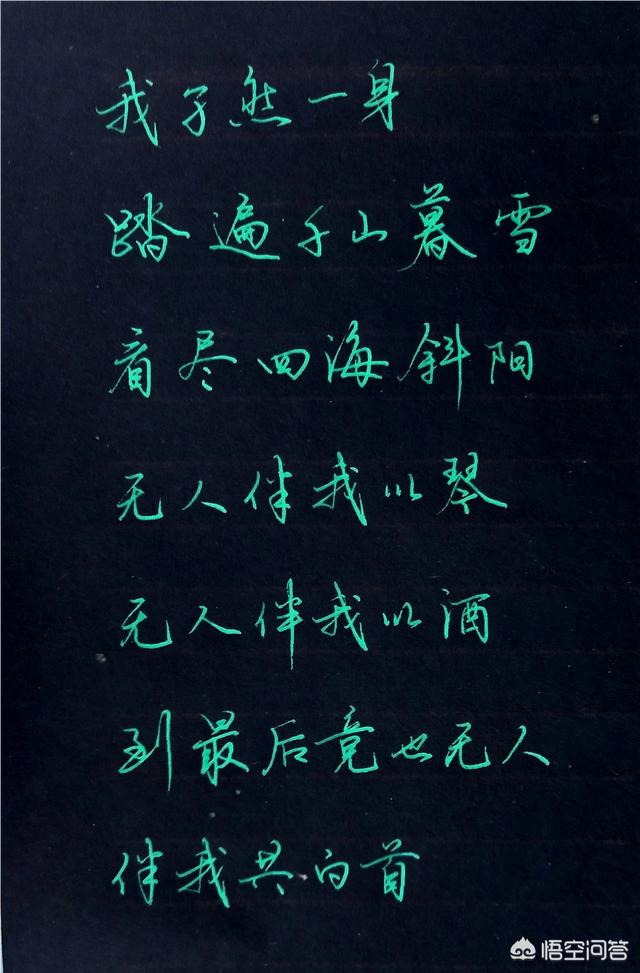 我孑然一身
踏遍千山暮雪
看尽四海斜阳
无人伴我以琴
无人伴我以酒
到最后竟也无人
伴我共白首
悟空问答